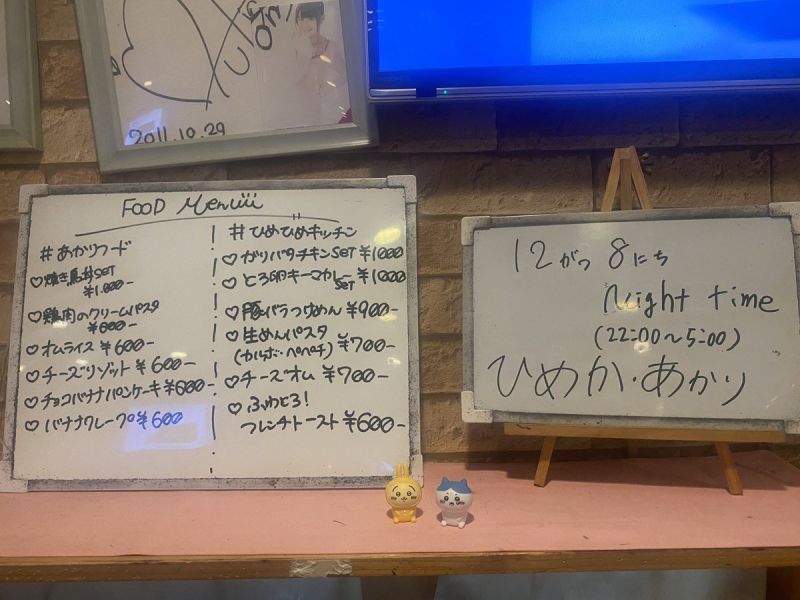 2011.10.29
FOOD Menuiii
#あかりフード
♡焼き鳥丼SET
¥1.000-
♡鶏肉のクリームパスタ
¥600-
♡オムライス ¥600-
♡チーズリゾット ¥600-
♡チョコバナナパンケーキ¥600-
♡バナナクレープ¥600
#ひめびめキッチン
♡ガリバタチキンSET ¥1000
♡とろ卵キーマカレー ¥1000
SET
♡豚バラつけめん ¥900-
♡生めんパスタ
(カルボ・ペペチ) ¥700-
♡チーズオム ¥700-
♡ふわとろ!
フレンチトースト ¥600-
12がつ 8にち
Night time
(22:00~5:00)
ひめか・あかり